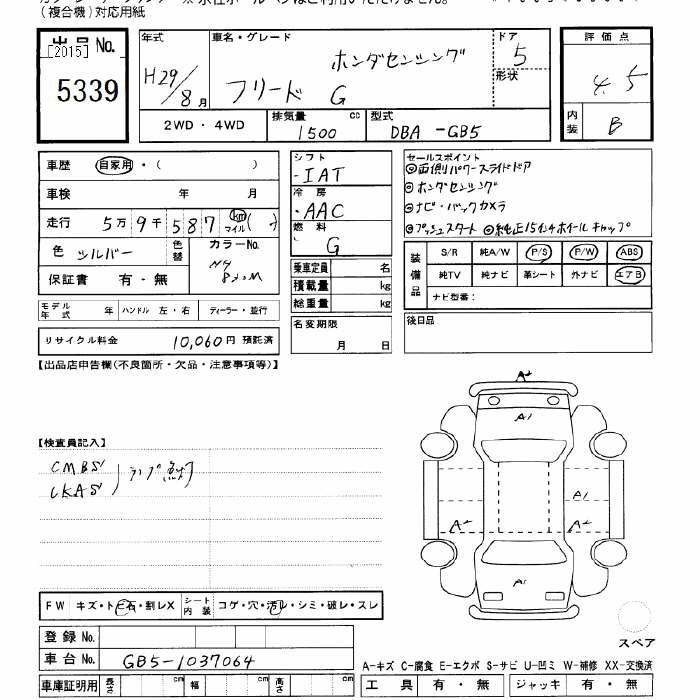 (複合機)対応用紙
出品 No.
[2015]
5339
年式
H29/8月
車名・グレード
ホンダセンシング
フリード G
ドア
5
形状
2WD・4WD
排気量 cc
1500
型式
DBA -GB5
評価点
4.5
内装
B
車歴 自家用・( )
車検 年 月
走行 5万9千587 km マイル( )
色 シルバー 色替 カラーNo.
保証書 有・無
NH
830M
モデル年式 年 ハンドル 左・右 ディーラー・並行
リサイクル料金 10,060円 預託済
シフト
・IAT
冷房
・AAC
燃料
G
乗車定員 名
積載量 kg
総重量 kg
名変期限
月 日
セールスポイント
◎両側パワースライドドア
◎ホンダセンシング
◎ナビ・バックカメラ
◎プッシュスタート ◎純正15インチホイールキャップ
装備品
S/R 純A/W P/S P/W ABS
純TV 純ナビ 革シート 外ナビ エアB
ナビ型番:
後日品
【出品店申告欄(不良箇所・欠品・注意事項等)】
【検査員記入】
CMBS
LKAS
ランプ点灯
A2
A1
A1
A2
A2
A1
FW キズ・トビ石・割レX シート内装 コゲ・穴・汚レ・シミ・破レ・スレ
登録 No.
車台 No. GB5-1037064
車庫証明用 長さ cm 幅 cm 高さ cm
スペア
A-キズ C-腐食 E-エクボ S-サビ U-凹ミ W-補修 XX-交換済
工具 有・無 ジャッキ 有・無